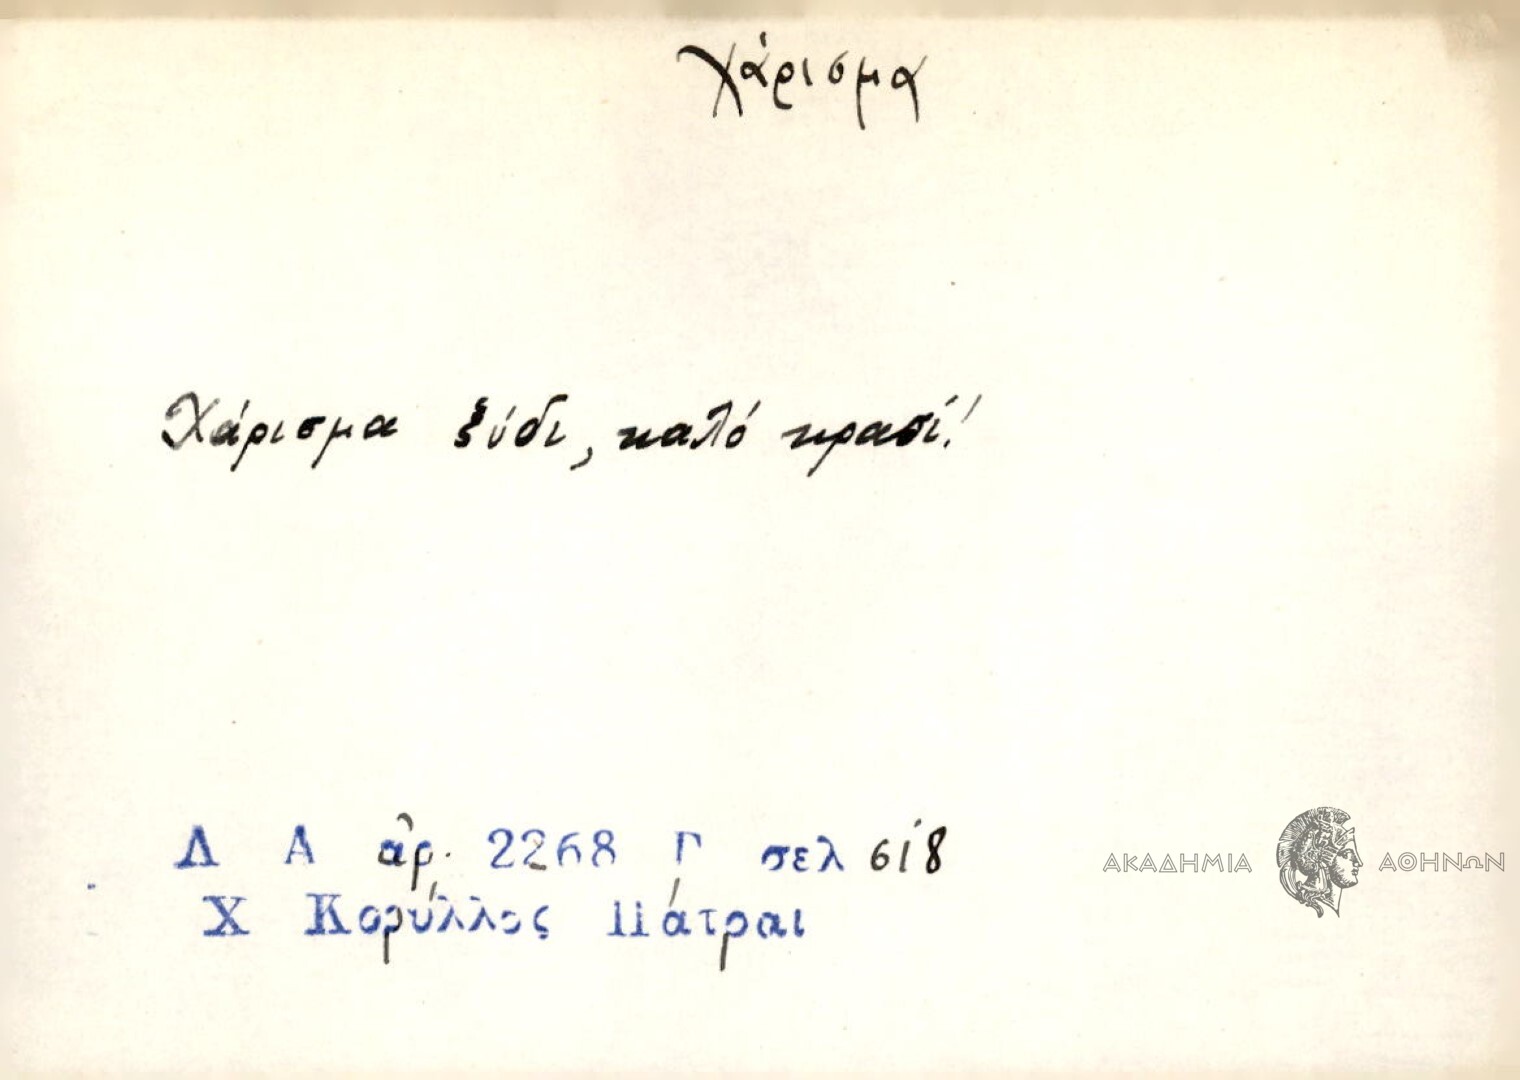 χάρισμα
Χάρισμα ξύδι, καλό κρασί!
Λ Α ἀρ. 2268 Γ σελ 618
Χ Κορύλλος Πάτραι
ΑΚΑΔΗΜΙΑ ΑΘΗΝΩΝ